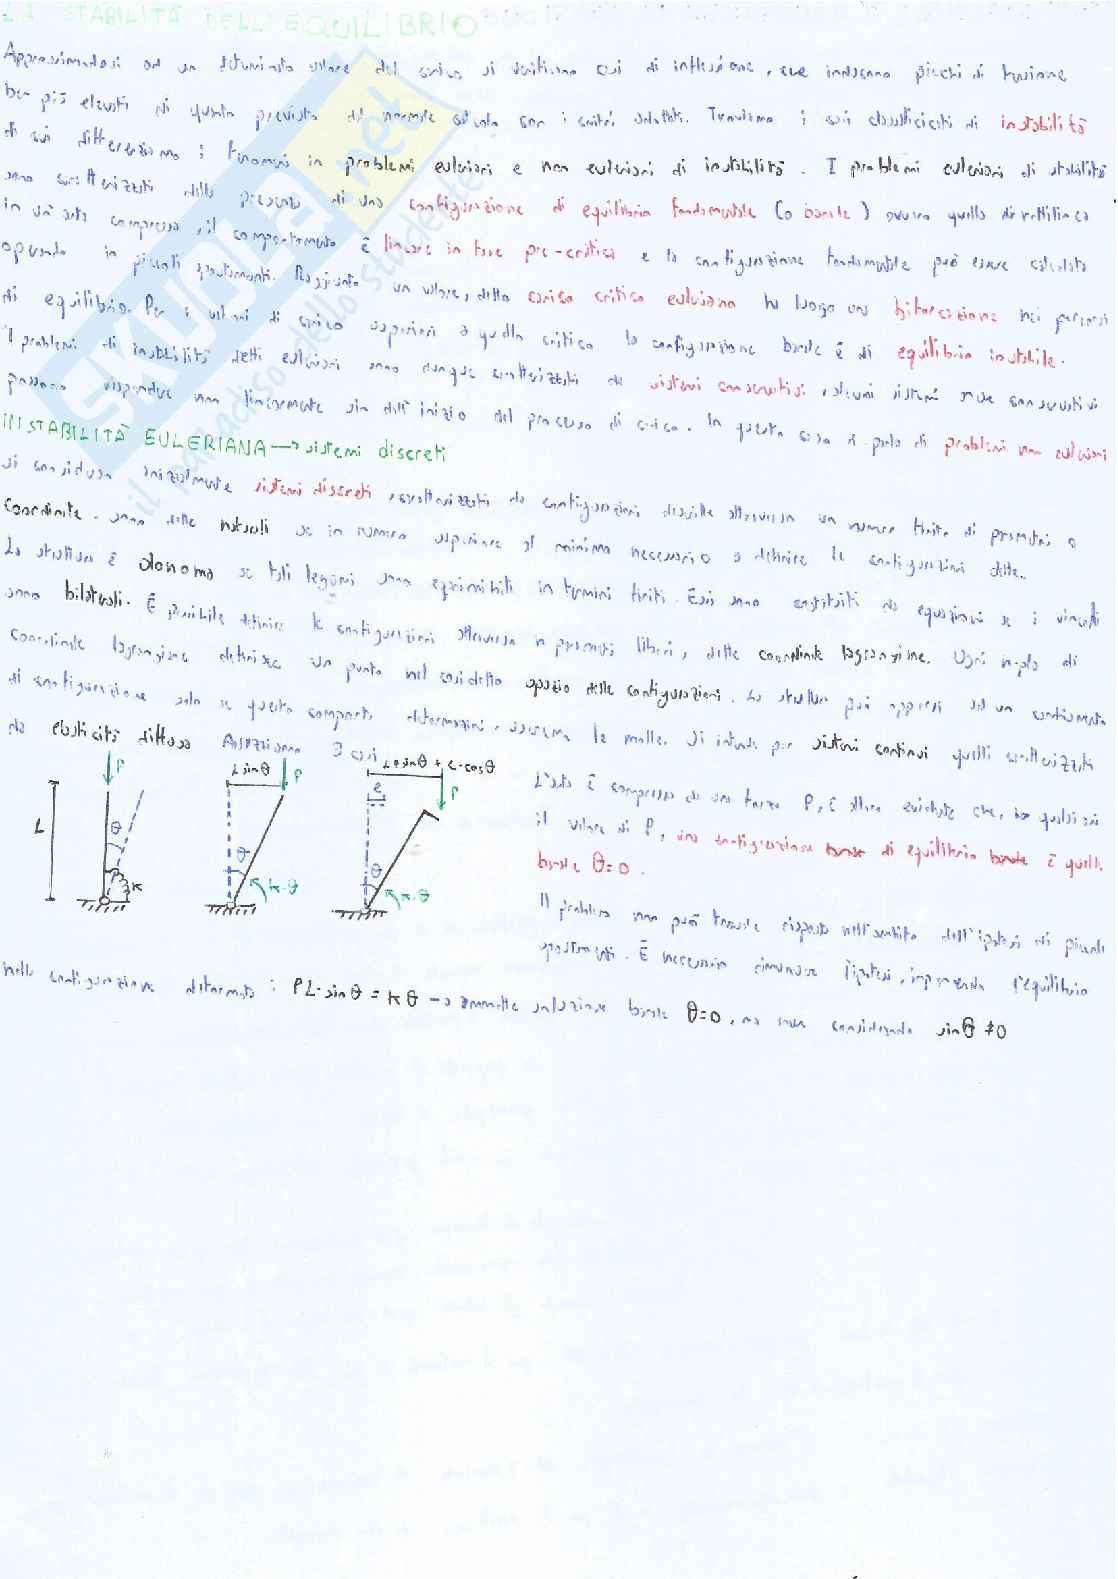 LA STABILITÀ DELL'EQUILIBRIO
Approssimandosi ad un determinato valore del carico si verificano casi di inflessione, che inducono picchi di tensione
ben più elevati di quanto previsto dal normale calcolo con i criteri adottati. Troviamo i casi classificati di instabilità
di cui differenziamo i fenomeni in problemi euleriani e non euleriani di instabilità. I problemi euleriani di stabilità
sono caratterizzati dalla presenza di una configurazione di equilibrio fondamentale (o banale) ovvero quella di rettilinea
in un'asta compressa, il comportamento è lineare in fase pre-critica e la configurazione fondamentale può essere calcolata
operando in piccoli spostamenti. Raggiunto un valore, detto carico critico euleriano ha luogo una biforcazione nei percorsi
di equilibrio. Per i valori di carico superiori a quello critico la configurazione banale è di equilibrio instabile.
I problemi di instabilità detti euleriani sono dunque caratterizzati da sistemi conservativi, alcuni sistemi conservativi
possono rispondere non linearmente sin dall'inizio del processo di carico. In questo caso si parla di problemi non euleriani
INSTABILITÀ EULERIANA → sistemi discreti
si considerano inizialmente sistemi discreti, caratterizzati da configurazioni descritte attraverso un numero finito di parametri o
coordinate. sono dette naturali se in numero superiore al minimo necessario a definire le configurazioni dette.
La struttura è olonoma se tali legami sono esprimibili in termini finiti. Essi sono costituiti da equazioni se i vincoli
sono bilaterali. È possibile definire le configurazioni attraverso n parametri liberi, dette coordinate lagrangiane. Ogni n-pla di
coordinate lagrangiane definisce un punto nel cosidetto spazio delle configurazioni. La struttura può opporsi ad un cambiamento
di configurazione solo se questo comporta deformazioni, useremo le molle. Si intende per sistemi continui quelli caratterizzati
da elasticità diffusa Analizziamo 3 casi
P L θ K
L sinθ P θ K·θ
L·sinθ + e·cosθ e P θ K·θ
L'asta è compressa da una forza P, è allora evidente che, per qualsiasi
il valore di P, una configurazione di equilibrio banale è quella
banale θ=0.
Il problema non può trovare risposta nell'ambito dell'ipotesi di piccoli
spostamenti. È necessario rimuovere l'ipotesi, imponendo l'equilibrio
nella configurazione deformata: PL·sinθ = Kθ → ammette soluzione banale θ=0, ma non considerando sinθ ≠0